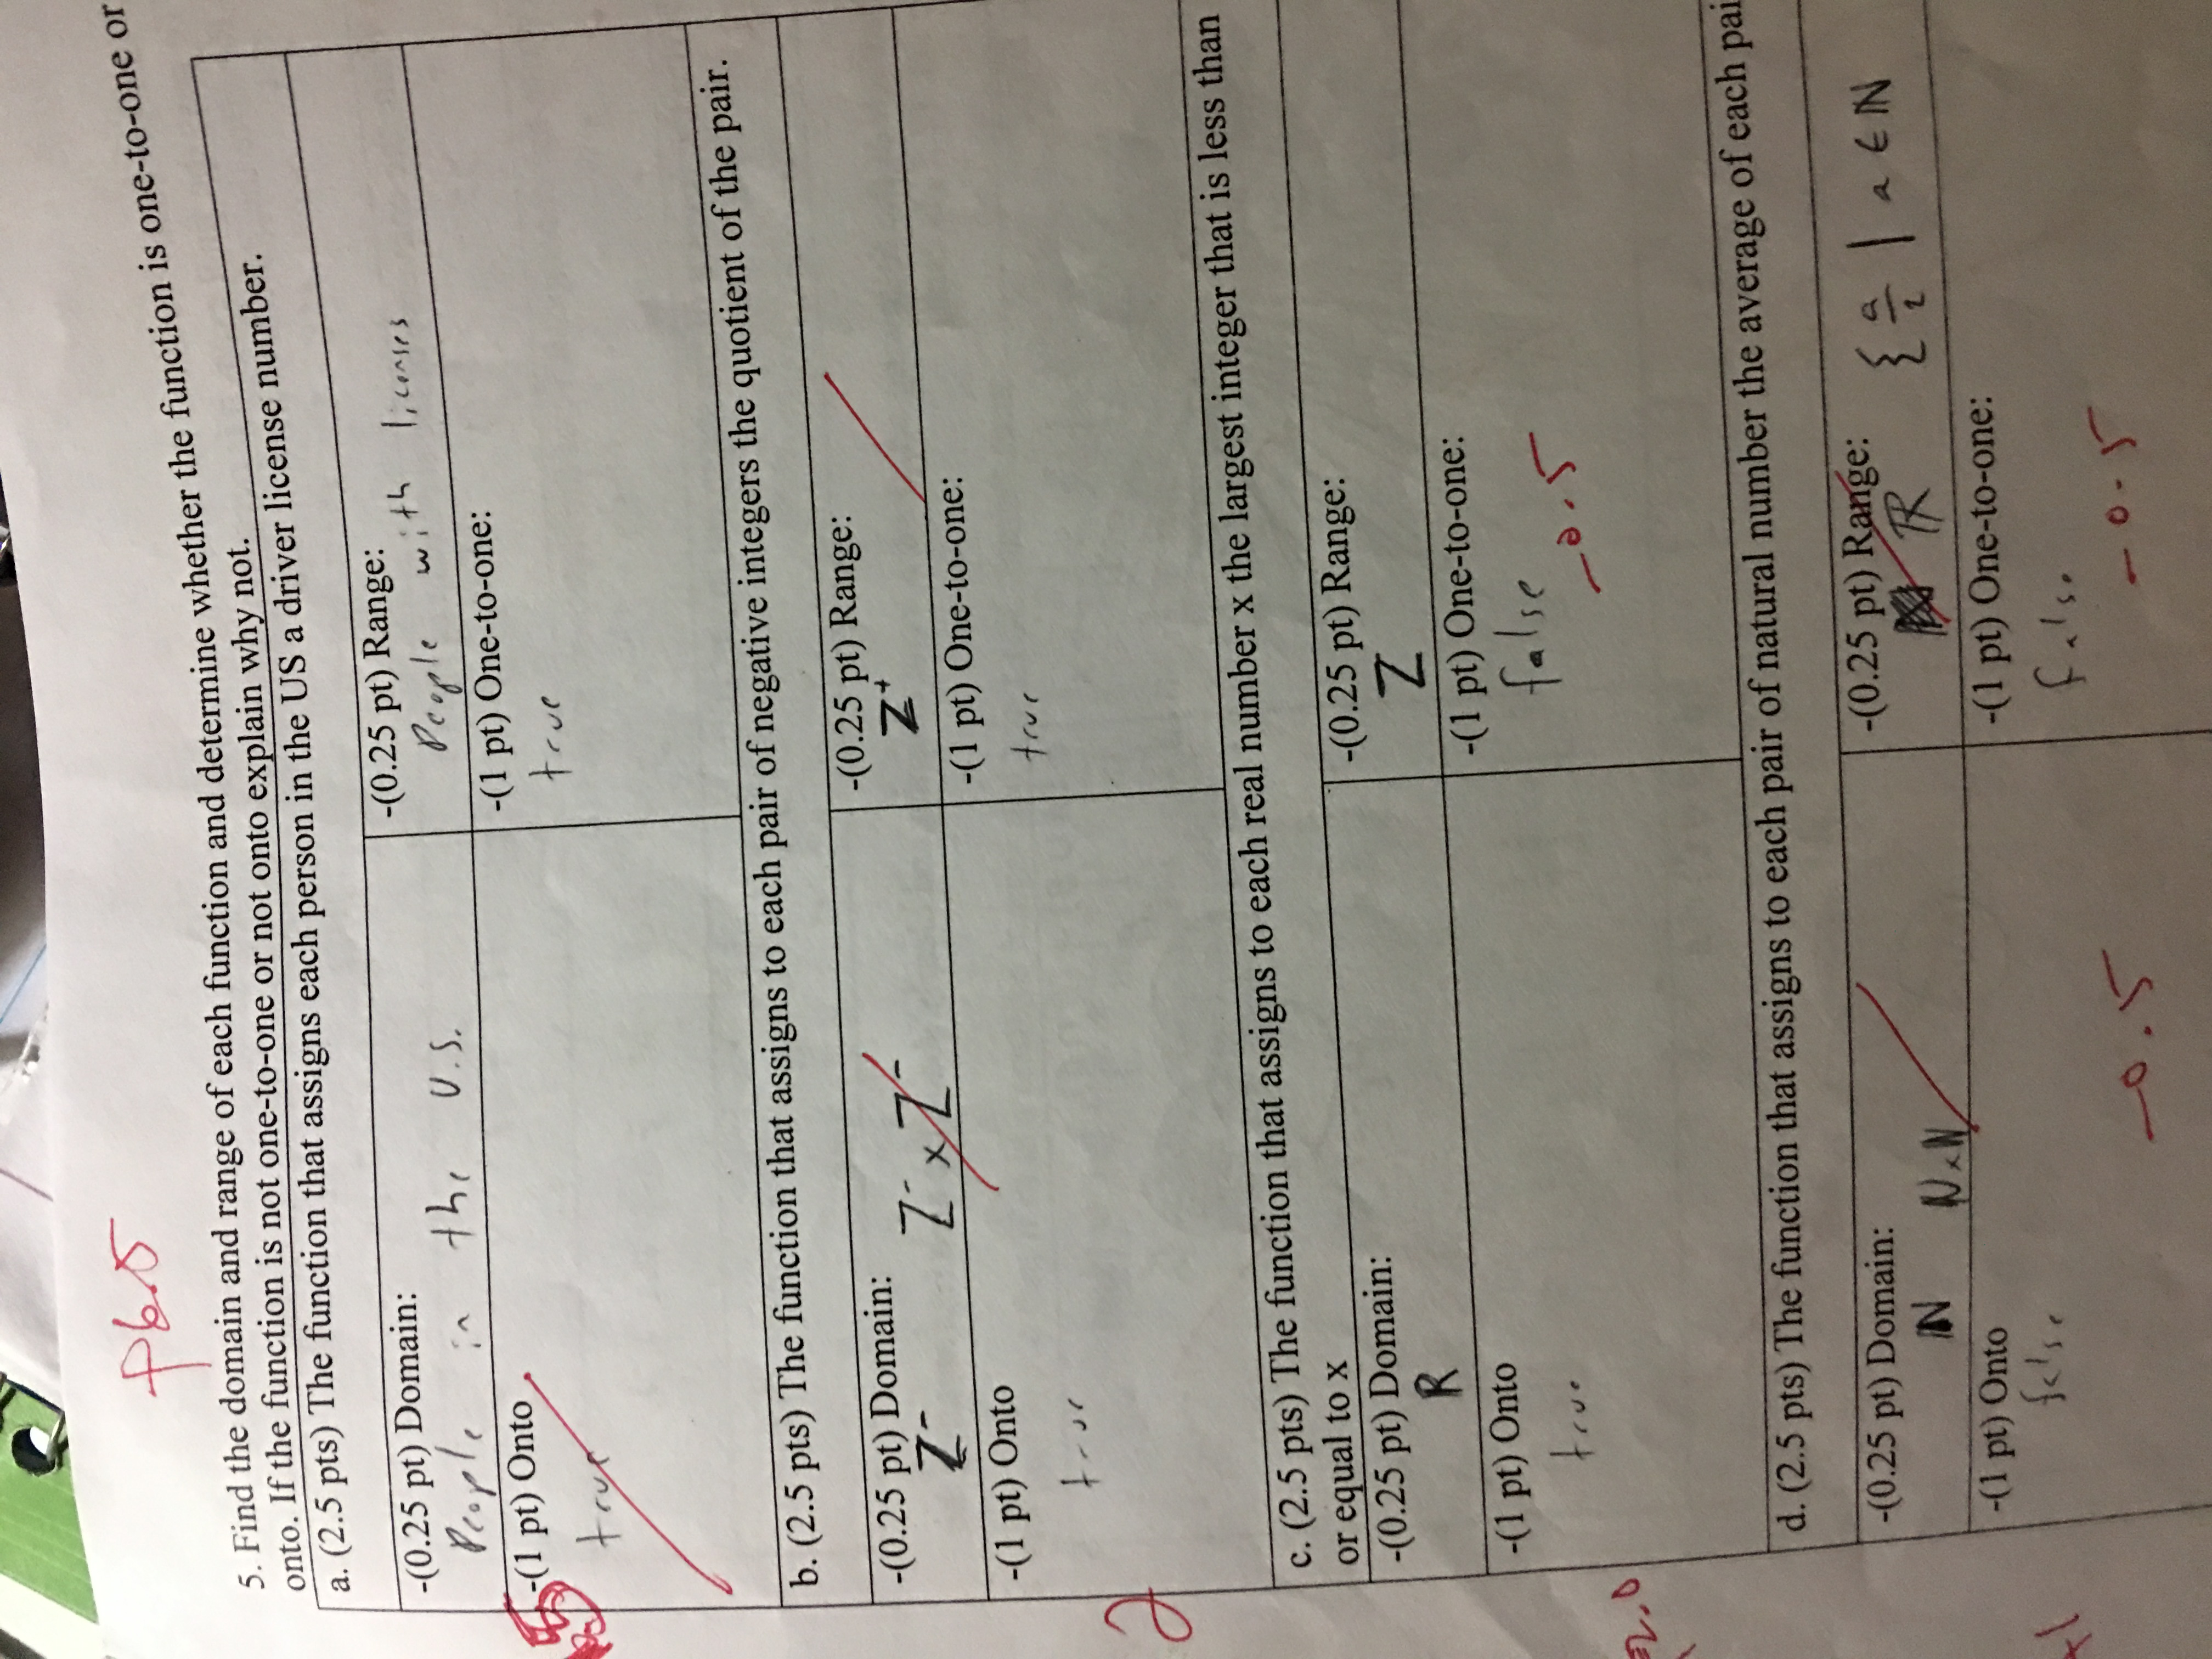 +6.5
5. Find the domain and range of each function and determine whether the function is one-to-one or
onto. If the function is not one-to-one or not onto explain why not.
a. (2.5 pts) The function that assigns each person in the US a driver license number.
-(0.25 pt) Domain:
People in the U.S.
-(0.25 pt) Range:
People with licenses
-(1 pt) Onto
true
-(1 pt) One-to-one:
true
b. (2.5 pts) The function that assigns to each pair of negative integers the quotient of the pair.
-(0.25 pt) Domain:
Z⁻ Z⁻ x Z⁻
-(0.25 pt) Range:
Z⁺
-(1 pt) Onto
true
-(1 pt) One-to-one:
true
2
c. (2.5 pts) The function that assigns to each real number x the largest integer that is less than
or equal to x
-(0.25 pt) Domain:
R
-(0.25 pt) Range:
Z
-(1 pt) Onto
true
-(1 pt) One-to-one:
false
-0.5
2.0
d. (2.5 pts) The function that assigns to each pair of natural number the average of each pai
-(0.25 pt) Domain:
N N x N
-(0.25 pt) Range:
R { a/2 | a ∈ N
-(1 pt) Onto
false
-0.5
-(1 pt) One-to-one:
false
-0.5
+1